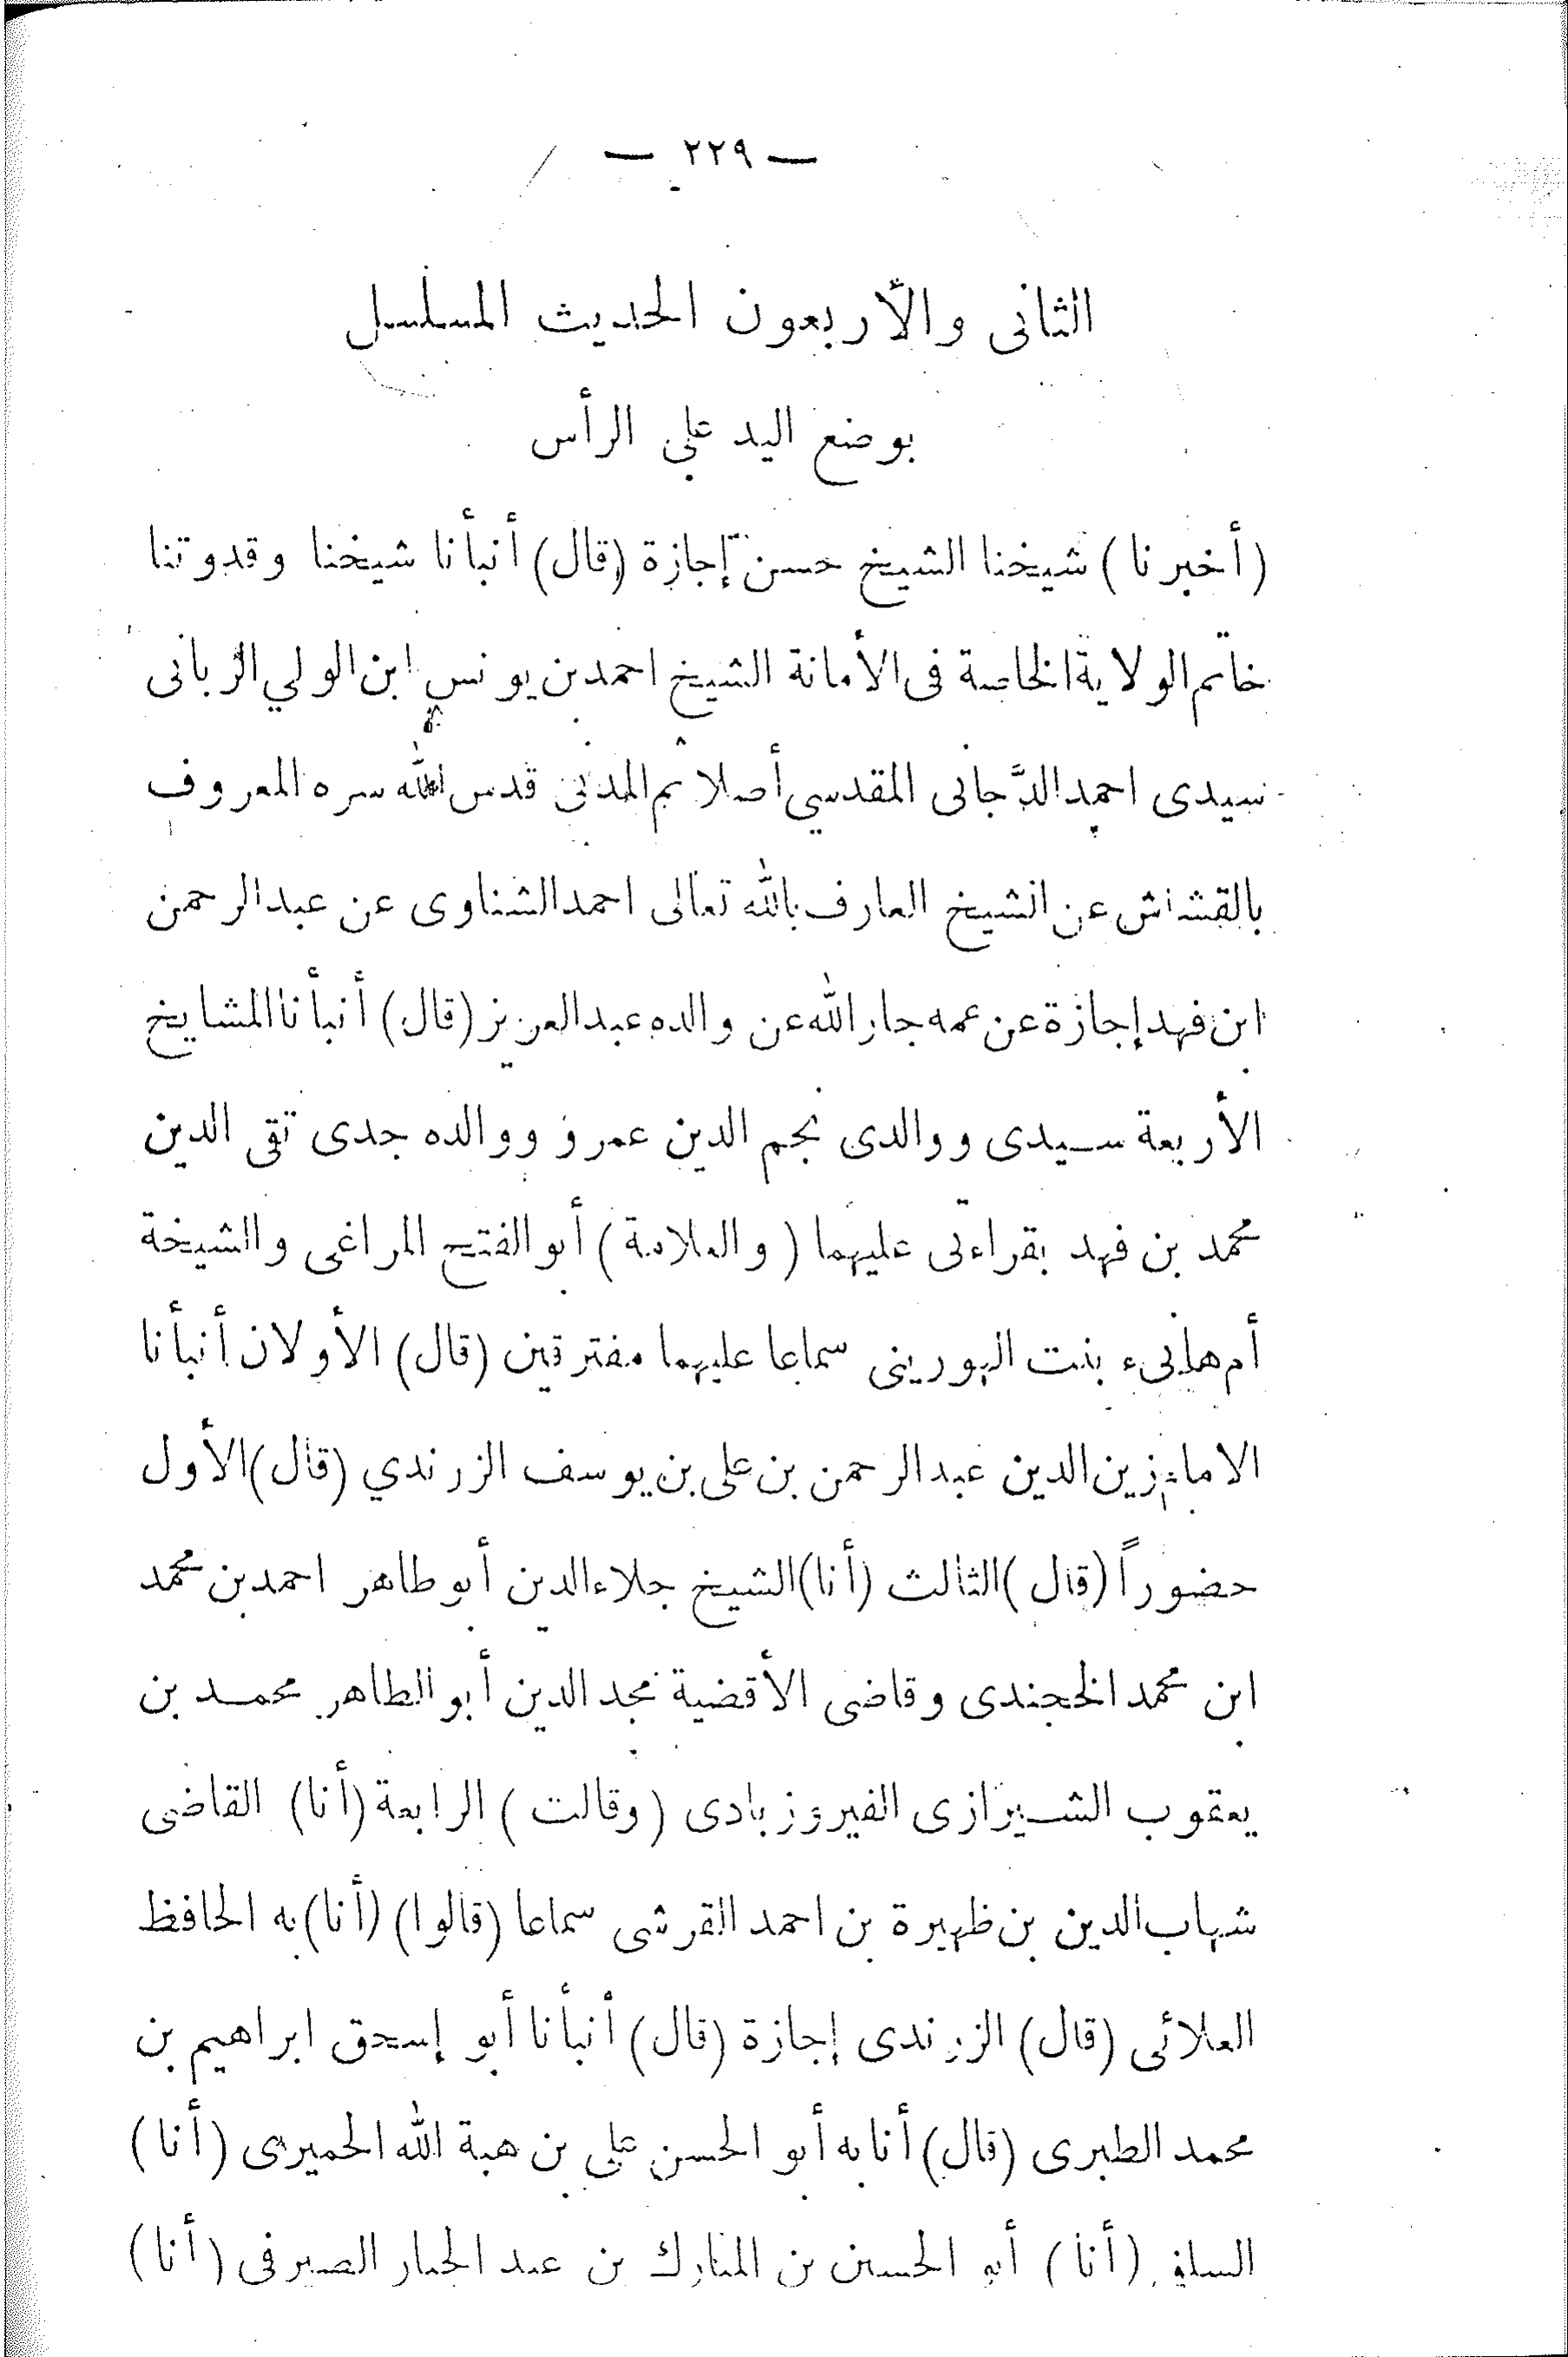 — ٢٢٩ —
الثانى والأربعون الحديث المسلسل
بوضع اليد على الرأس
(أخبرنا) شيخنا الشيخ حسن إجازة (قال) أنبأنا شيخنا وقدوتنا
خاتم الولاية الخاصة فى الأمانة الشيخ احمد بن يونس ابن الولي الربانى
سيدى احمد الدَّجانى المقدسي أصلا ثم المدنى قدس الله سره المعروف
بالقشاش عن الشيخ العارف بالله تعالى احمد الشناوى عن عبد الرحمن
ابن فهد إجازة عن عمه جار الله عن والده عبد العزيز (قال) أنبأنا المشايخ
الأربعة سيدى ووالدى نجم الدين عمر و ووالده جدى تقى الدين
محمد بن فهد بقراءتى عليهما (والعلامة) أبو الفتح المراغى والشيخة
أم هانىء بنت الهورينى سماعا عليهما مفترقين (قال) الأولان أنبأنا
الامام زين الدين عبد الرحمن بن على بن يوسف الزرندي (قال) الأول
حضوراً (قال) الثالث (أنا) الشيخ جلاء الدين أبو طاهر احمد بن محمد
ابن محمد الخجندى وقاضى الأقضية مجد الدين أبو الطاهر محمد بن
يعقوب الشيرازى الفيروزبادى (وقالت) الرابعة (أنا) القاضى
شهاب الدين بن ظهيرة بن احمد القرشى سماعا (قالوا) (أنا) به الحافظ
العلائى (قال) الزرندى إجازة (قال) أنبأنا أبو إسحق ابراهيم بن
محمد الطبرى (قال) أنا به أبو الحسن على بن هبة الله الحميرى (أنا)
السلفى (أنا) أبو الحسين بن المبارك بن عبد الجبار الصيرفى (أنا)